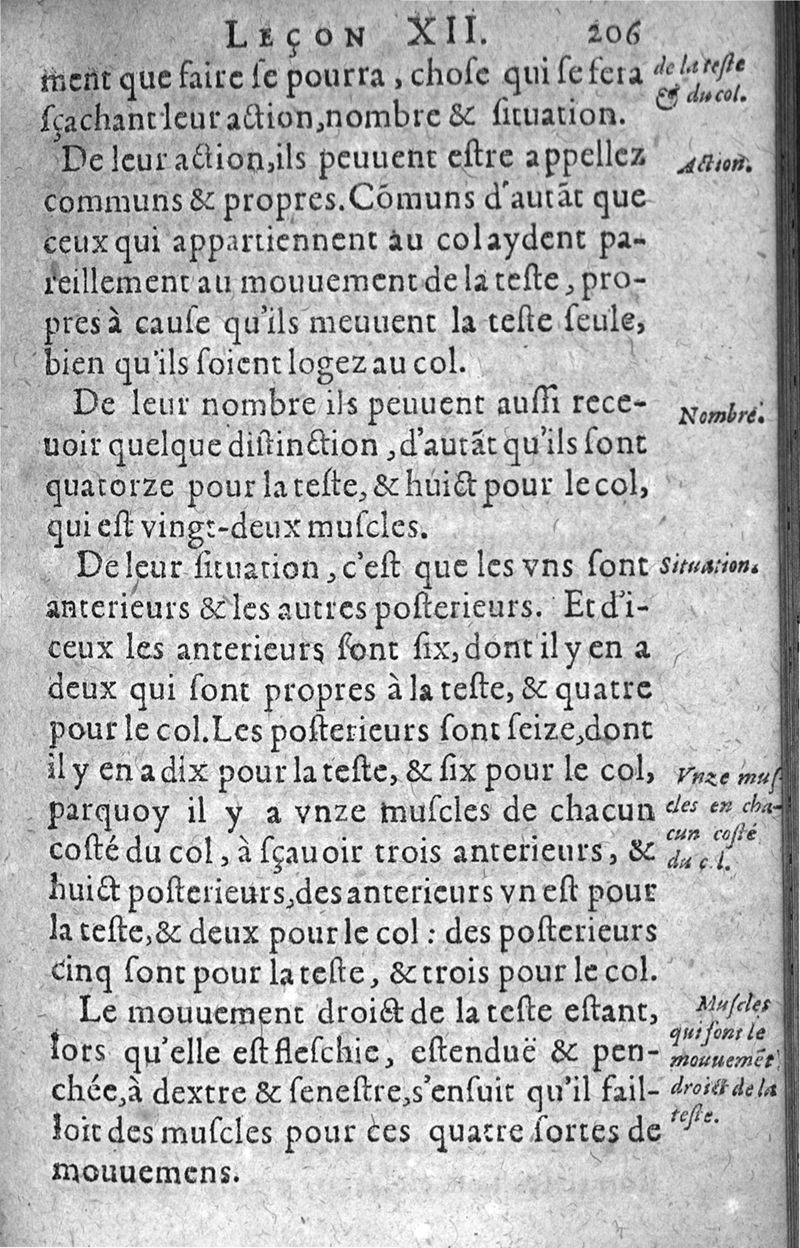 LEÇON XII. 206
ment que faire ſe pourra, choſe qui ſe fera
ſçachant leur action, nombre & ſituation.
De leur action, ils peuuent eſtre appellez
communs & propres. Cõmuns d'autãt que
ceux qui appartiennent au col aydent pa-
reillement au mouuement de la teſte, pro-
pres à cauſe qu'ils meuuent la teſte ſeule,
bien qu'ils ſoient logez au col.
De leur nombre ils peuuent auſſi rece-
uoir quelque diſtinction, d'autãt qu'ils ſont
quatorze pour la teſte, & huict pour le col,
qui eſt vingt-deux muſcles.
De leur ſituation, c'eſt que les vns ſont
anterieurs & les autres poſterieurs. Et d'i-
ceux les anterieurs ſont ſix, dont il y en a
deux qui ſont propres à la teſte, & quatre
pour le col. Les poſterieurs ſont ſeize, dont
il y en a dix pour la teſte, & ſix pour le col,
parquoy il y a vnze muſcles de chacun
coſté du col, à ſçauoir trois anterieurs, &
huict poſterieurs, des anterieurs vn eſt pour
la teſte, & deux pour le col : des poſterieurs
cinq ſont pour la teſte, & trois pour le col.
Le mouuement droict de la teſte eſtant,
lors qu'elle eſt fleſchie, eſtenduë & pen-
chée, à dextre & ſeneſtre, s'enſuit qu'il fail-
loit des muſcles pour ces quatre ſortes de
mouuemens.
de la teſte
& du col.
Action.
Nombre.
Situation.
Vnze muſ
cles en cha-
cun coſté
du col.
Muſcles
qui font le
mouuemẽt
droict de la
teſte.